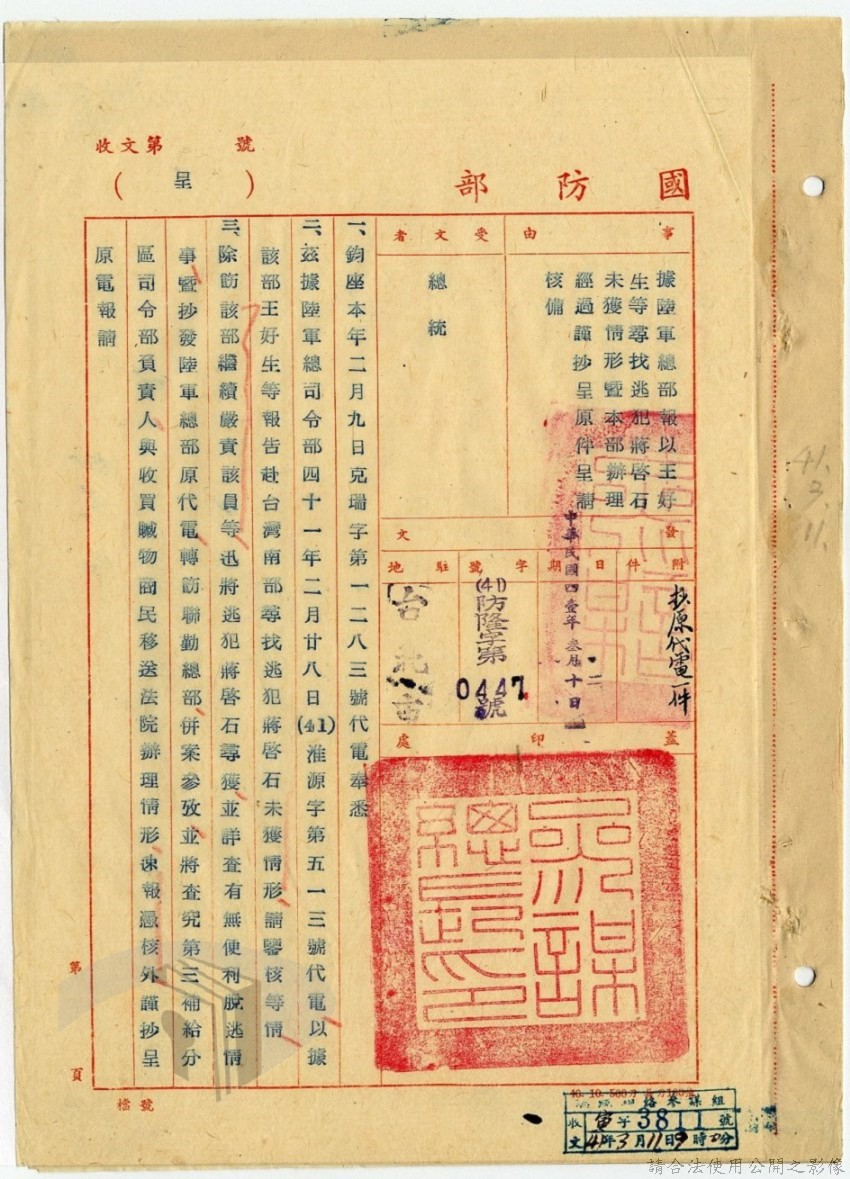 收文第　號
國防部
（呈）
事由
據陸軍總部報以王好
生等尋找逃犯蔣啓石
未獲情形暨本部辦理
經過謹抄呈原件呈請
核備
受文者
總統
發文
附件
抄原代電一件
日期
中華民國四壹年叁月十二日
字號
(41)防隆字第
0447號
駐地
台北市
蓋印處
參謀總長之印
一、鈞座本年二月九日克瑞字第一二八三號代電奉悉
二、茲據陸軍總司令部四十一年二月廿八日(41)淮源字第五一三號代電以據
該部王好生等報告赴台灣南部尋找逃犯蔣啓石未獲情形請鑒核等情
三、除飭該部繼續嚴責該員等迅將逃犯蔣啓石尋獲並詳查有無便利脫逃情
事暨抄發陸軍總部原代電轉飭聯勤總部併案參攷並將查究第三補給分
區司令部負責人與收買贓物商民移送法院辦理情形速報憑核外謹抄呈
原電報請
第　頁
檔號
41.
3.
11.
收文
字3811號
41年3月11日9時0分
請合法使用公開之影像